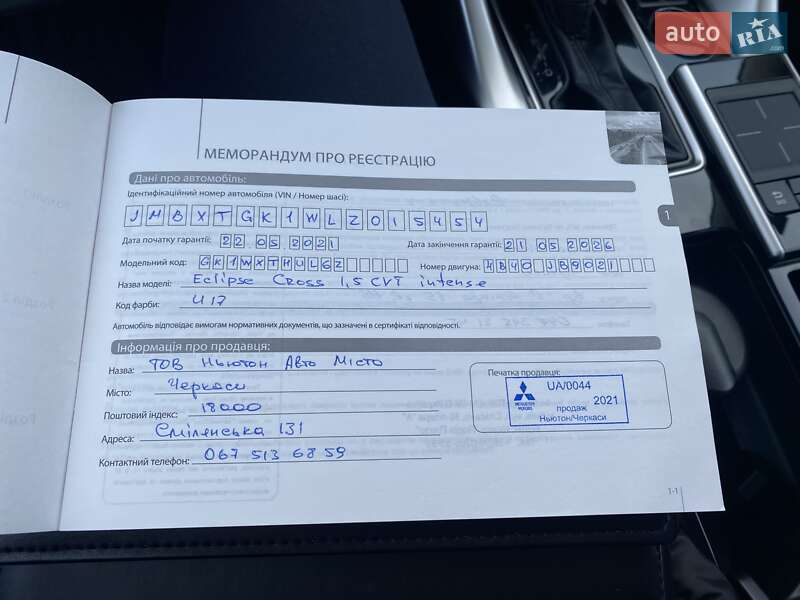 auto RIA.com
МЕМОРАНДУМ ПРО РЕЄСТРАЦІЮ
Дані про автомобіль:
Ідентифікаційний номер автомобіля (VIN / Номер шасі):
JMBXTGK1WLZ015454
Дата початку гарантії: 22.05.2021 Дата закінчення гарантії: 21.05.2026
Модельний код: GK1WXTHUL6Z Номер двигуна: 4B40 JB9021
Назва моделі: Eclipse Cross 1,5 CVT intense
Код фарби: U17
Автомобіль відповідає вимогам нормативних документів, що зазначені в сертифікаті відповідності.
Інформація про продавця:
Назва: ТОВ Ньютон Авто Місто
Печатка продавця:
Місто: Черкаси
UA/0044
2021
MITSUBISHI MOTORS
продаж
Ньютон/Черкаси
Поштовий індекс: 18000
Адреса: Смілянська 131
Контактний телефон: 067 513 68 59
1
1-1